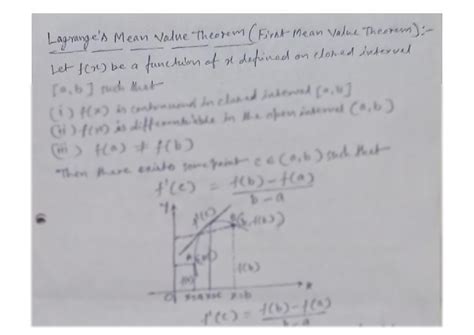 Lagrange's Mean Value Theorem (First Mean Value Theorem):-
Let f(x) be a function of x defined on closed interval
[a,b] such that-
(i) f(x) is continuous in closed interval [a,b]
(ii) f(x) is differentiable in the open interval (a,b)
(iii) f(a) ≠ f(b)
Then there exists some point c ∈ (a,b) such that-
f'(c) = f(b)-f(a) / b-a
y
f'(c)
B(b, f(b))
A
f(b)
O x=a x=c x=b x
f'(c) = f(b)-f(a) / b-a